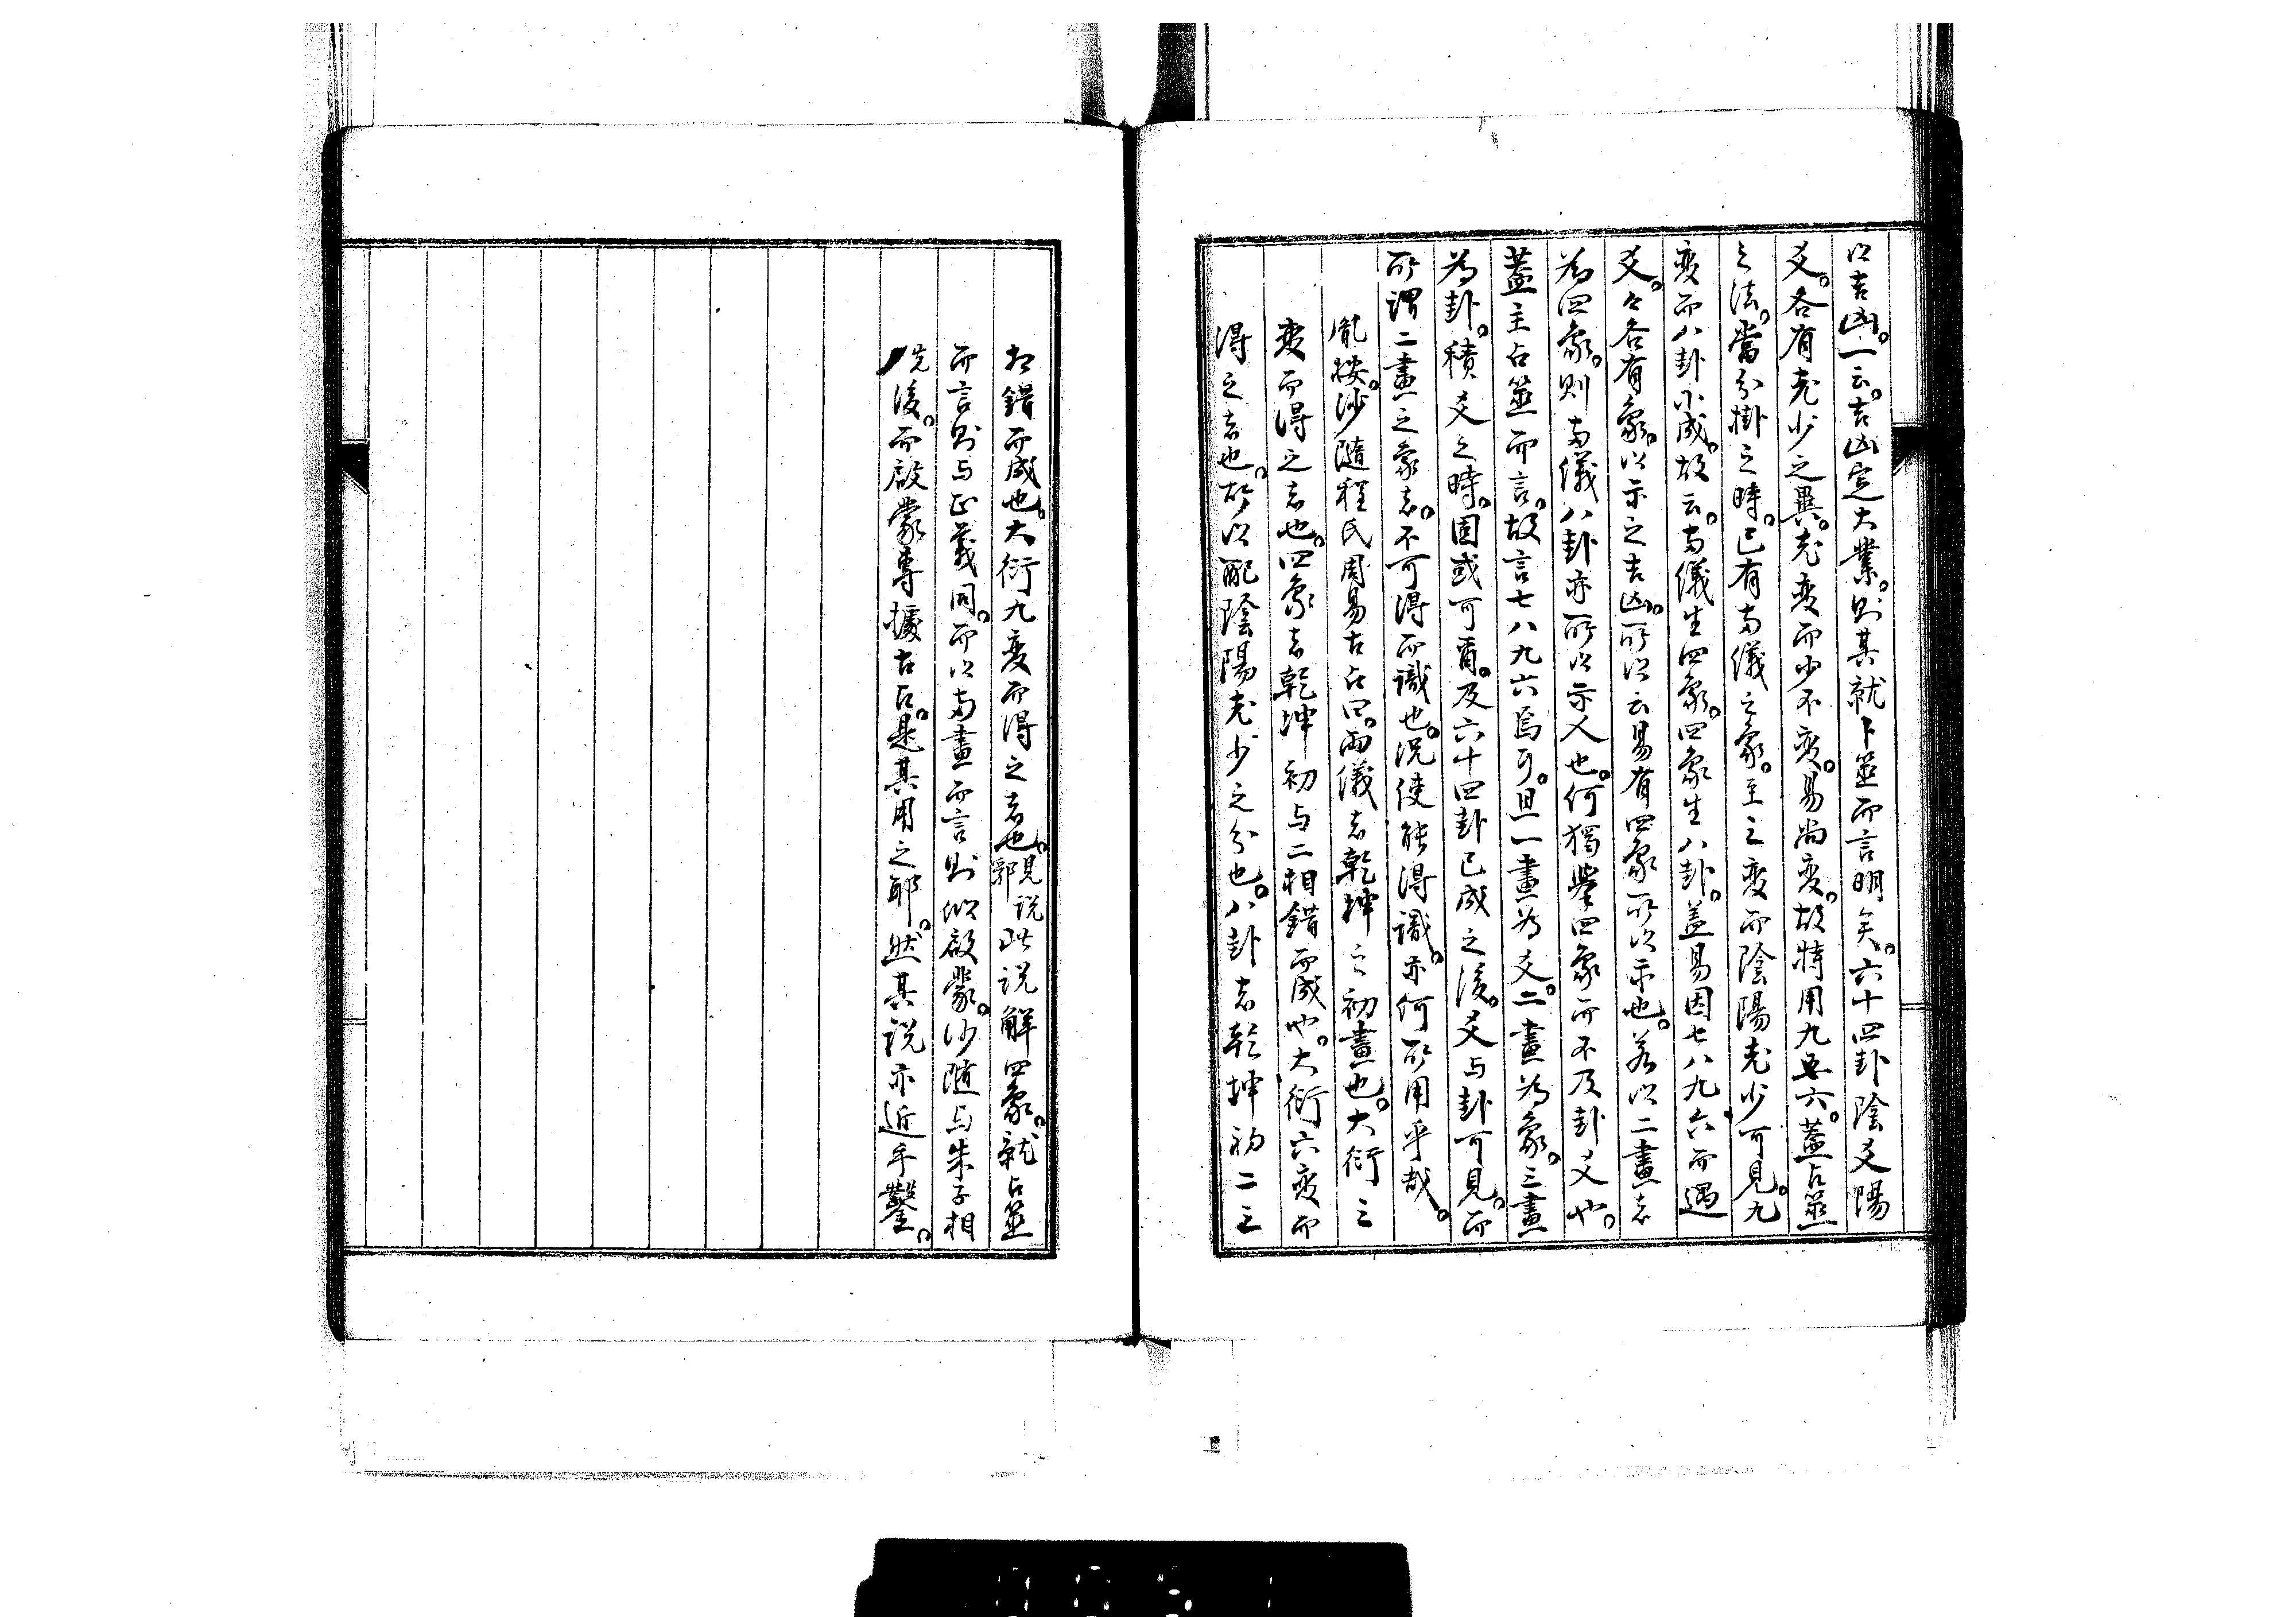 以吉凶。一云。吉凶定大業。則其就卜筮而言明矣。六十四卦陰爻陽
爻。各有老少之異。老變而少不變。易尚變。故特用九與六。蓋占筮
之法。當分掛之時。已有兩儀之象。至三變而陰陽老少可見。九
變而八卦小成。故云。兩儀生四象。四象生八卦。蓋易因七八九六而遇
爻。々各有象。以示之吉凶。所以云易有四象所以示也。若以二畫者
為四象。則兩儀八卦亦所以示人也。何獨舉四象而不及卦爻也。
蓋主占筮而言。故言七八九六焉可。且一畫為爻。二畫為象。三畫
為卦。積爻之時。固或可爾。及六十四卦已成之後。爻与卦可見。而
所謂二畫之象者。不可得而識也。況使能得識。亦何所用乎哉。
胤按。沙隨程氏周易古占曰。兩儀者乾坤之初畫也。大衍三
變而得之者也。四象者乾坤初与二相錯而成也。大衍六變而
得之者也。故以配陰陽老少之分也。八卦者乾坤初二三
相錯而成也。大衍九變而得之者也。見郭說此說解四象。就占筮
而言則与正義同。而以兩畫而言則似啟蒙。沙隨与朱子相
先後。而啟蒙專據古占。是其用之耶。然其說亦近乎鑿。